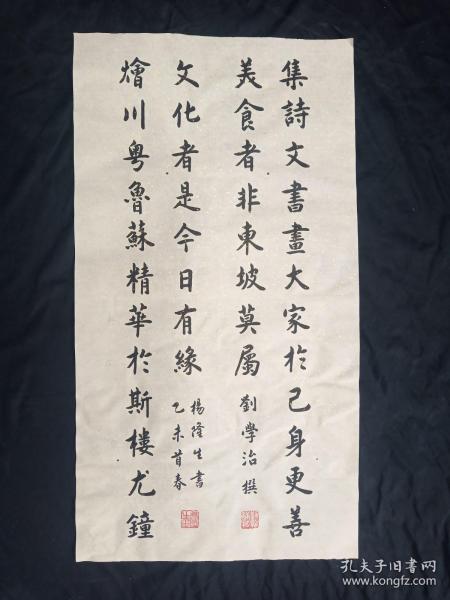 集詩文書畫大家於己身更善
美食者非東坡莫屬
劉學治撰
燴川粤魯蘇精華於斯樓尤鐘
文化者是今日有緣
楊隆生書
乙未首春
孔夫子旧书网
www.kongfz.com